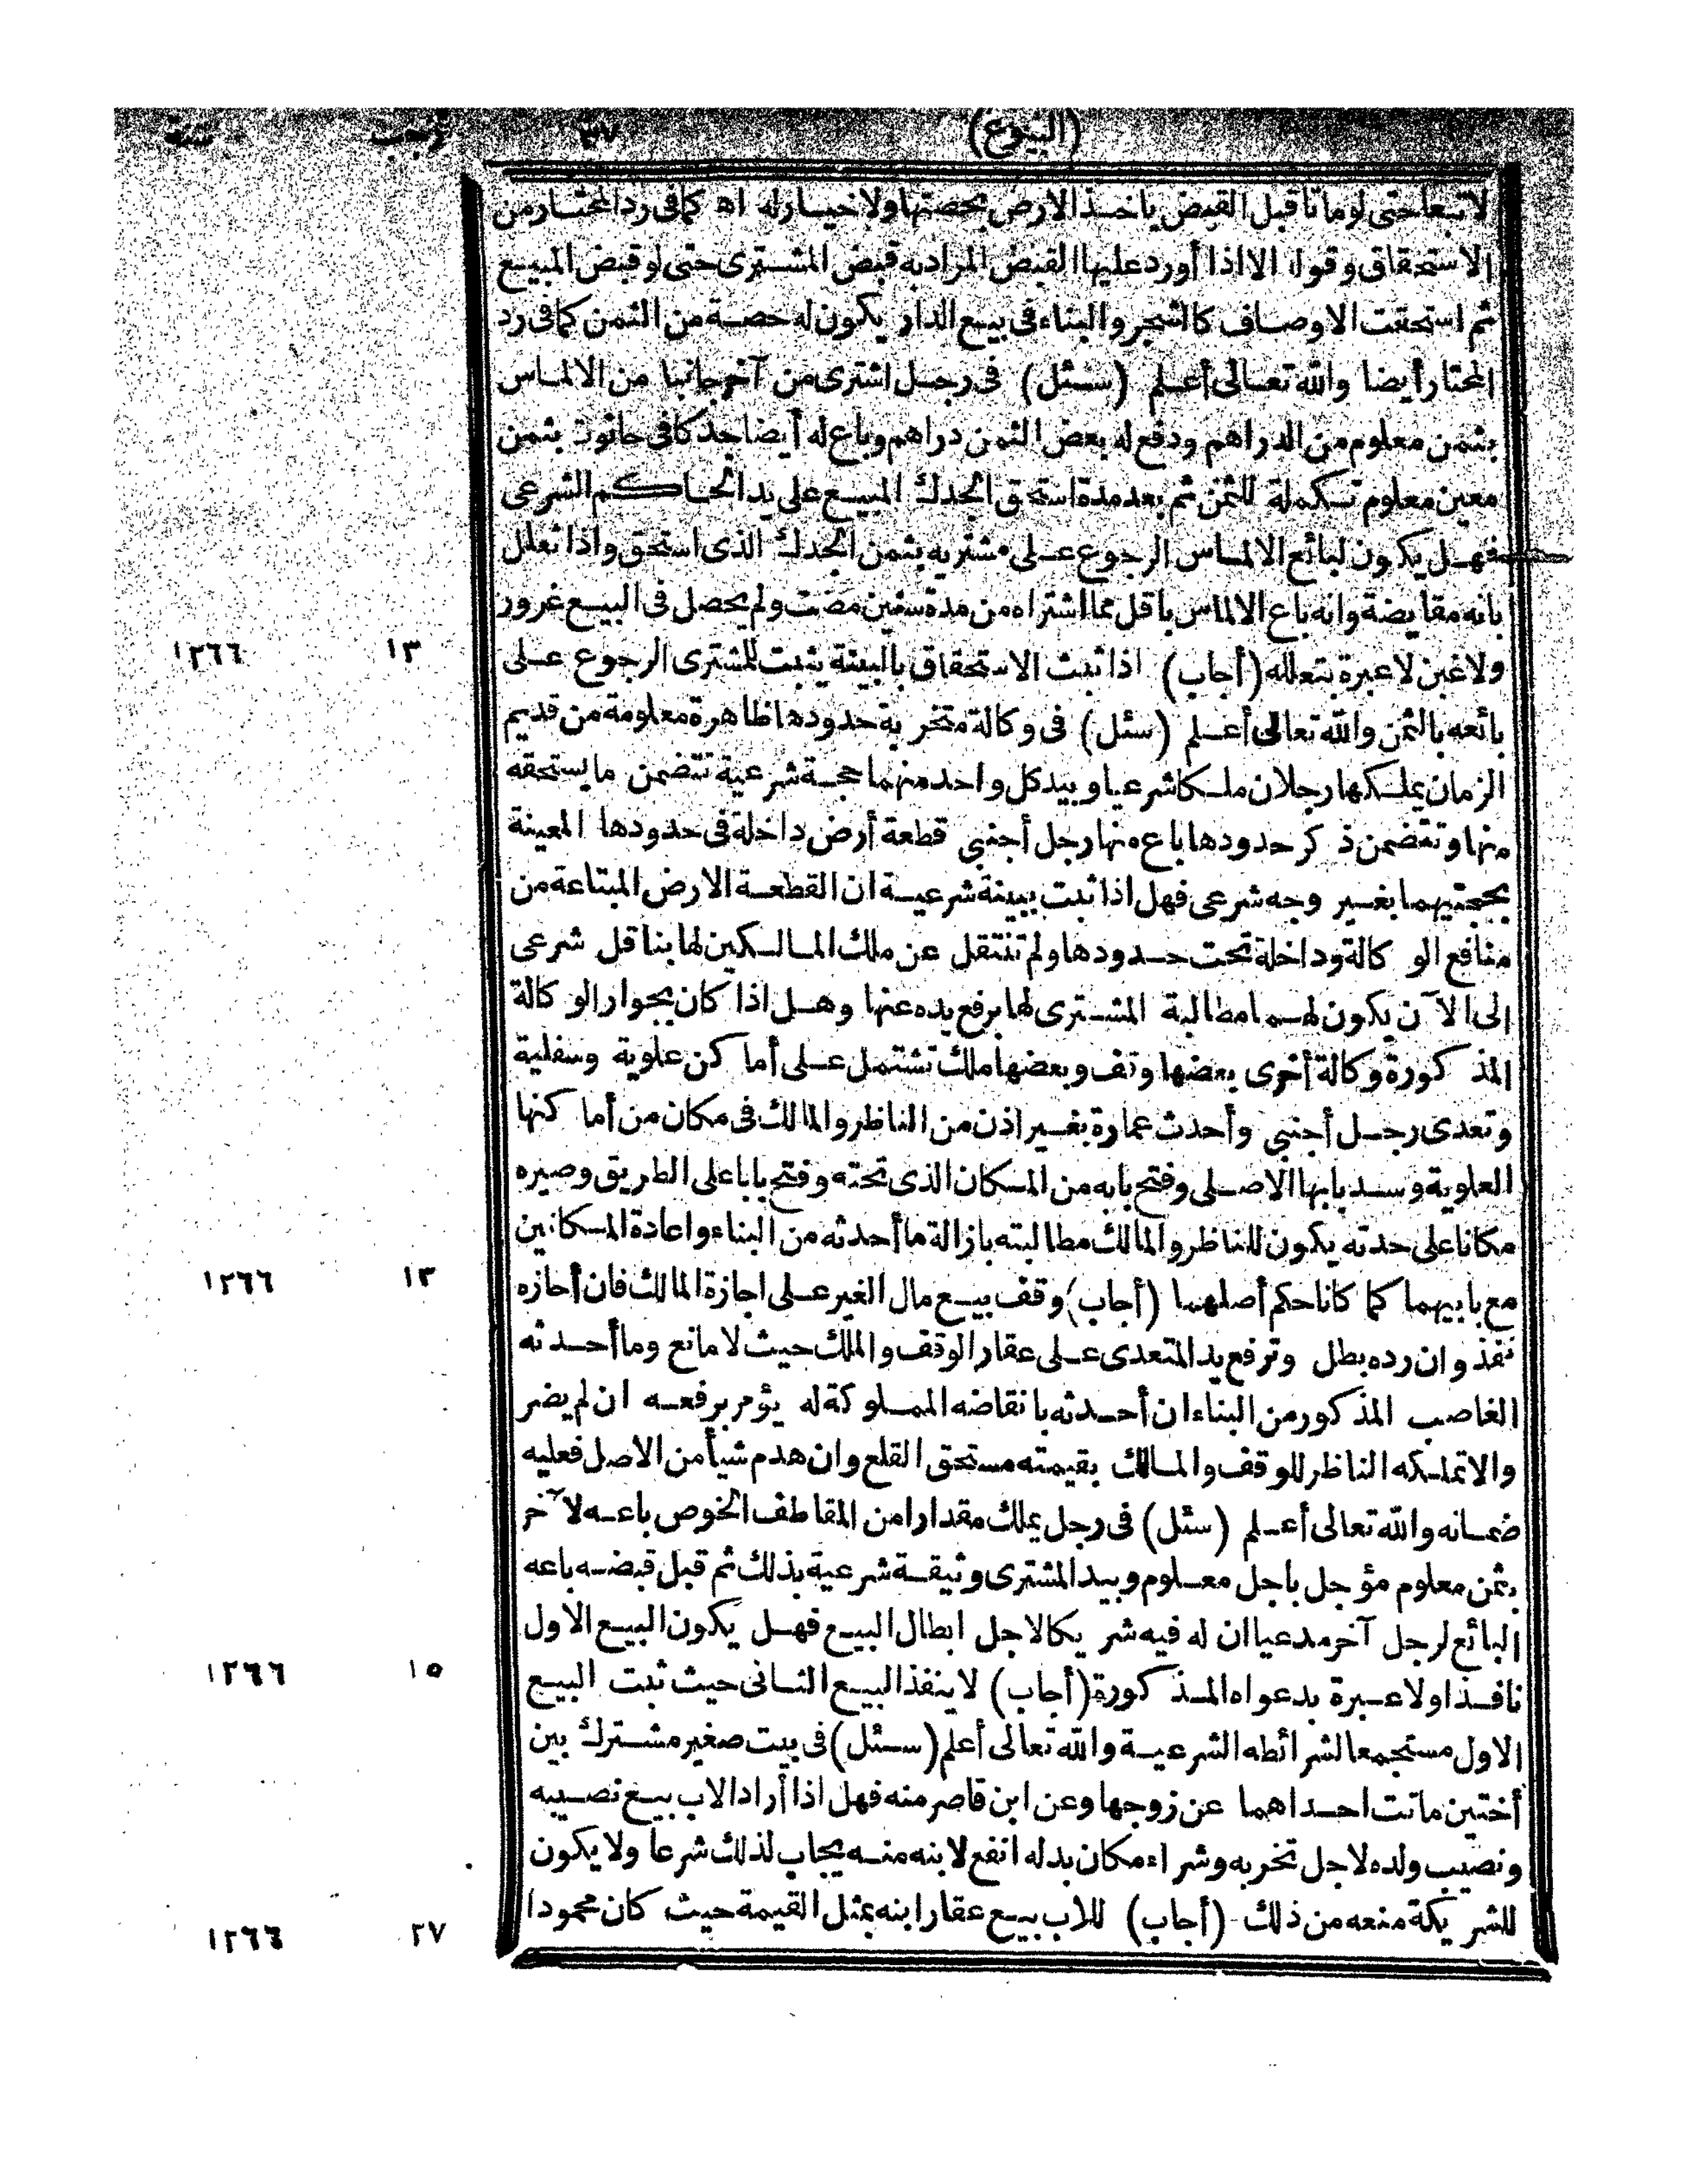 (البيوع) ٣٧ رجب سنة
لا تبعا حتى لو ماتا قبل القبض ياخذ الارض بحصتها ولا خيار له اه كما فى رد المحتار من
الاستحقاق وقوله الا اذا أورد عليها القبض المراد به قبض المشترى حتى لو قبض المبيع
ثم استحقت الاوصاف كالشجر والبناء فى بيع الدار يكون له حصة من الثمن كما فى رد
المحتار أيضا والله تعالى أعلم (سئل) فى رجل اشترى من آخر جانبا من الالماس
بثمن معلوم من الدراهم ودفع له بعض الثمن دراهم وباع له أيضا جدكا فى حانوت بثمن
معين معلوم تكملة للثمن ثم بعد مدة استحق الجدك المبيع على يد الحاكم الشرعى
فهل يكون لبائع الالماس الرجوع على مشتريه بثمن الجدك الذى استحق واذا تعلل
بانه مقايضة وانه باع الالماس باقل مما اشتراه من مدة سنين مضت ولم يحصل فى البيع غرور
ولا غبن لا عبرة بتعلله (أجاب) اذا ثبت الاستحقاق بالبينة يثبت للمشترى الرجوع على ١٣ ١٢٦٦
بائعه بالثمن والله تعالى أعلم (سئل) فى وكالة متخربة حدودها ظاهرة معلومة من قديم
الزمان يملكها رجلان ملكا شرعيا وبيد كل واحد منهما حجة شرعية تتضمن ما يستحقه
منها وتتضمن ذكر حدودها باع منها رجل أجنبى قطعة أرض داخلة فى حدودها المعينة
بحجتيهما بغير وجه شرعى فهل اذا ثبت ببينة شرعية ان القطعة الارض المبتاعة من
منافع الوكالة وداخلة تحت حدودها ولم تنتقل عن ملك المالكين لها بناقل شرعى
الى الآن يكون لهما مطالبة المشترى لها برفع يده عنها وهل اذا كان بجوار الوكالة
المذكورة وكالة أخرى بعضها وقف وبعضها ملك تشتمل على أماكن علوية وسفلية
وتعدى رجل أجنبى وأحدث عمارة بغير اذن من الناظر والمالك فى مكان من أماكنها
العلوية وسد بابها الاصلى وفتح بابه من المكان الذى تحته وفتح بابا على الطريق وصيره
مكانا على حدته يكون للناظر والمالك مطالبته بازالة ما أحدثه من البناء واعادة المكانين
مع بابيهما كما كانا حكم أصلهما (أجاب) وقف بيع مال الغير على اجازة المالك فان أجازه ١٣ ١٢٦٦
نفذ وان رده بطل وترفع يد المتعدى على عقار الوقف والملك حيث لا مانع وما أحدثه
الغاصب المذكور من البناء ان أحدثه بانقاضه المملوكة له يؤمر برفعه ان لم يضر
والا تملكه الناظر للوقف والمالك بقيمته مستحق القلع وان هدم شيأ من الاصل فعليه
ضمانه والله تعالى أعلم (سئل) فى رجل يملك مقدارا من المقاطف الخوص باعه لآخر
بثمن معلوم مؤجل باجل معلوم وبيد المشترى وثيقة شرعية بذلك ثم قبل قبضه باعه
البائع لرجل آخر مدعيا ان له فيه شريكا لاجل ابطال البيع فهل يكون البيع الاول
نافذا ولا عبرة بدعواه المذكورة (أجاب) لا ينفذ البيع الثانى حيث ثبت البيع ١٥ ١٢٦٦
الاول مستجمعا لشرائطه الشرعية والله تعالى أعلم (سئل) فى بيت صغير مشترك بين
أختين ماتت احداهما عن زوجها وعن ابن قاصر منه فهل اذا أراد الاب بيع نصيبه
ونصيب ولده لاجل تخربه وشراء مكان بدله انفع لابنه منه يجاب لذلك شرعا ولا يكون
للشريكة منعه من ذلك (أجاب) للاب بيع عقار ابنه بمثل القيمة حيث كان محمودا ٢٧ ١٢٦٦